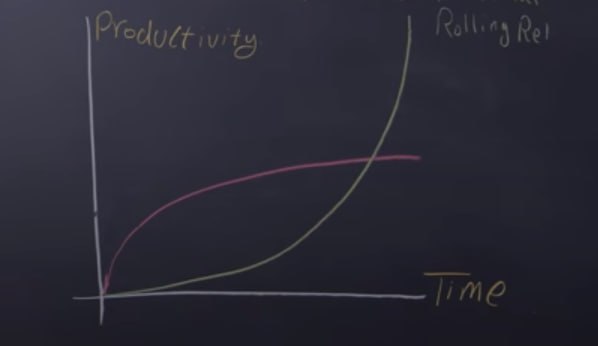 Productivity
Rolling Rel
Time